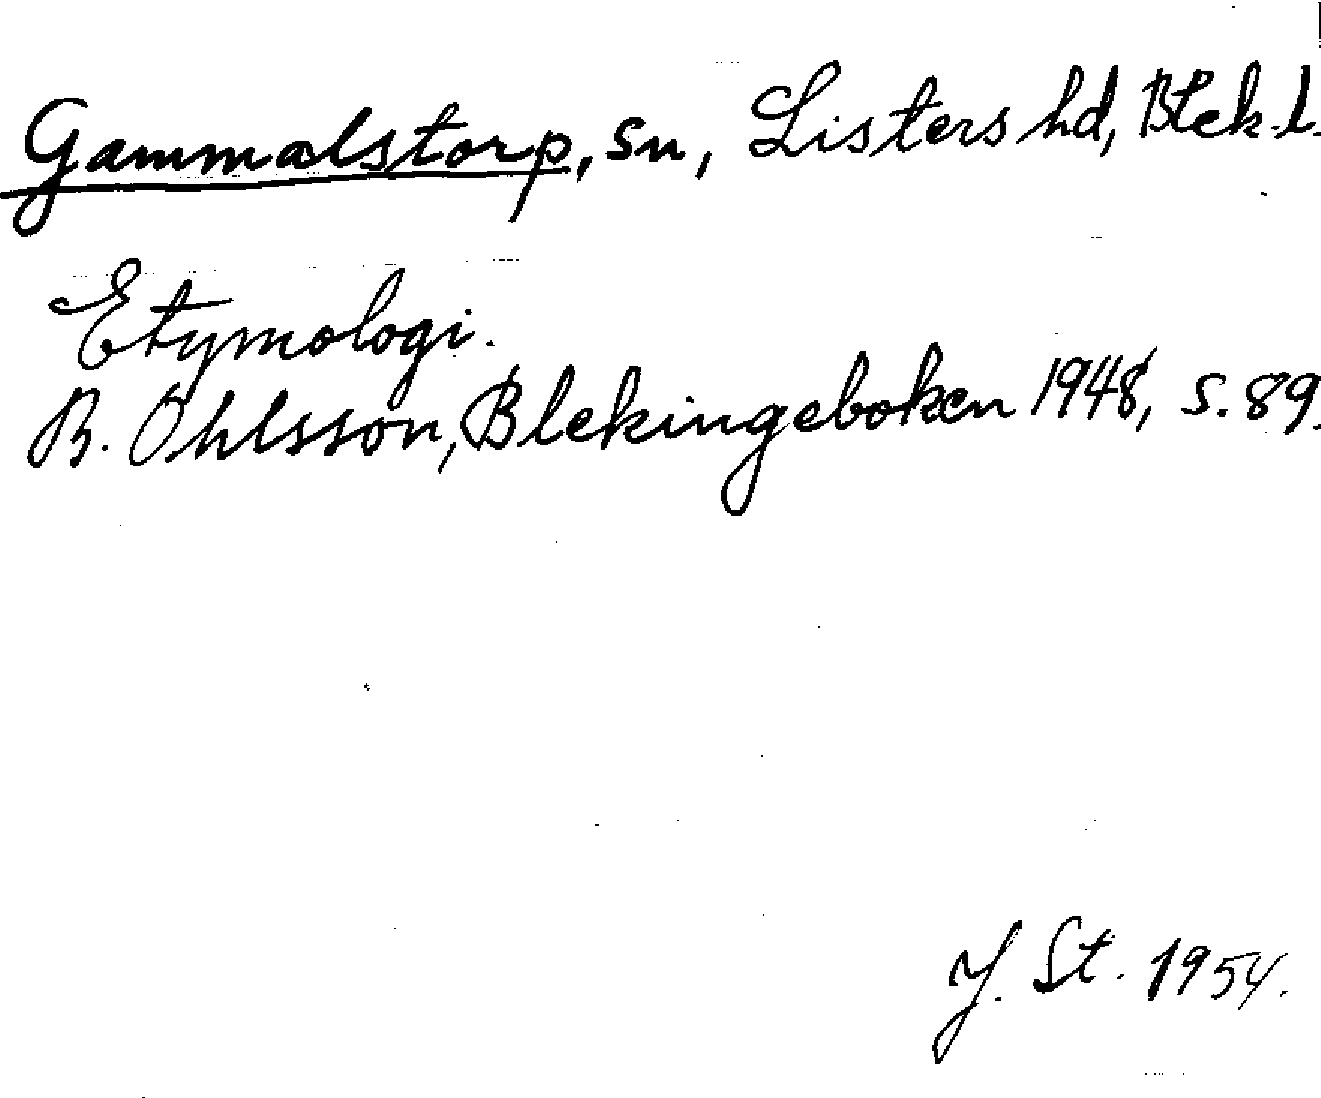 Gammalstorp, sn, Listers hd, Blek. l.
Etymologi.
B. Ohlsson, Blekingeboken 1948, s. 89.
J. St. 1954.